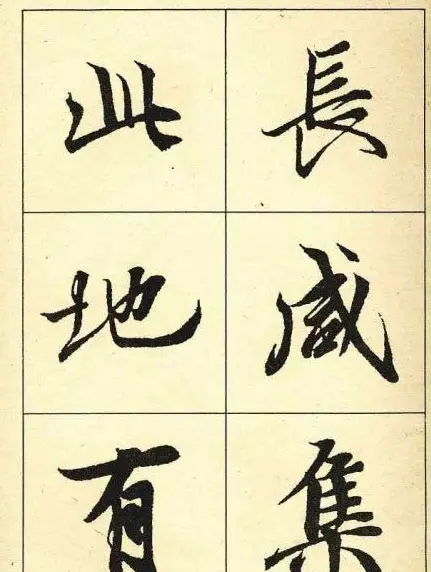 長咸集
此地有